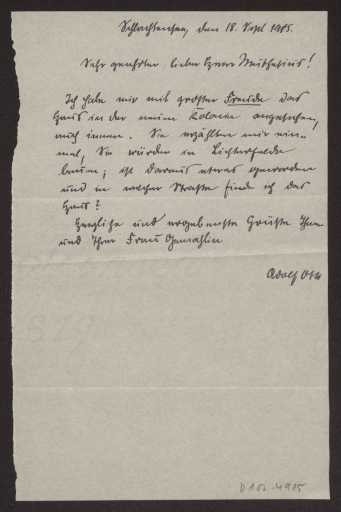 Schlachtensee, den 18. Sept 1905.
Sehr geehrter lieber Herr Muthesius!
Ich habe mir mit großer Freude das
Haus in der neuen Kolonie angesehen,
auch innen. Sie erzählten mir ein-
mal, Sie würden in Lichterfelde
bauen; ist daraus etwas geworden
und in welcher Straße finde ich das
Haus?
Herzliche und ergebenste Grüße Ihnen
und Ihrer Frau Gemahlin
Adolf Otto